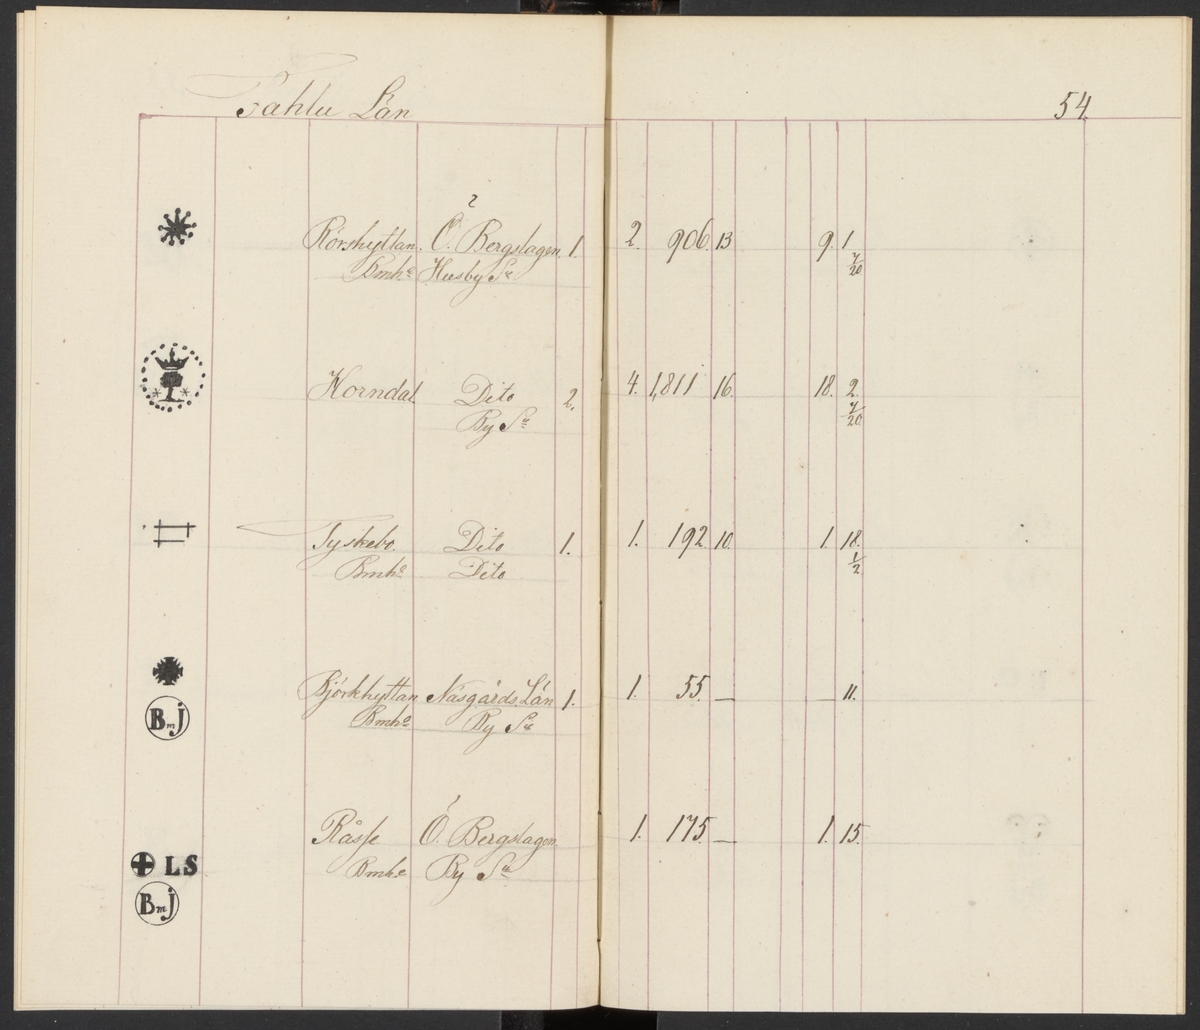 Fahlu Län 54.
Rörshyttan. Ö. Bergslagen 1. 2. 906. 13 9. 1 7/20
Bmhe Husby Sn
Horndal Dito 2. 4. 1,811 16. 18. 2. 7/20
By Sn
Tyskebo. Dito 1. 1. 192. 10. 1. 18. 1/2
Bmhe Dito
Björkhyttan Näsgårds Län 1. 1. 55. — — 11.
BmJ Bmhe By Sn
Råsse Ö. Bergslagen 1. 175. — 1. 15.
LS Bmhe By Sn
BmJ